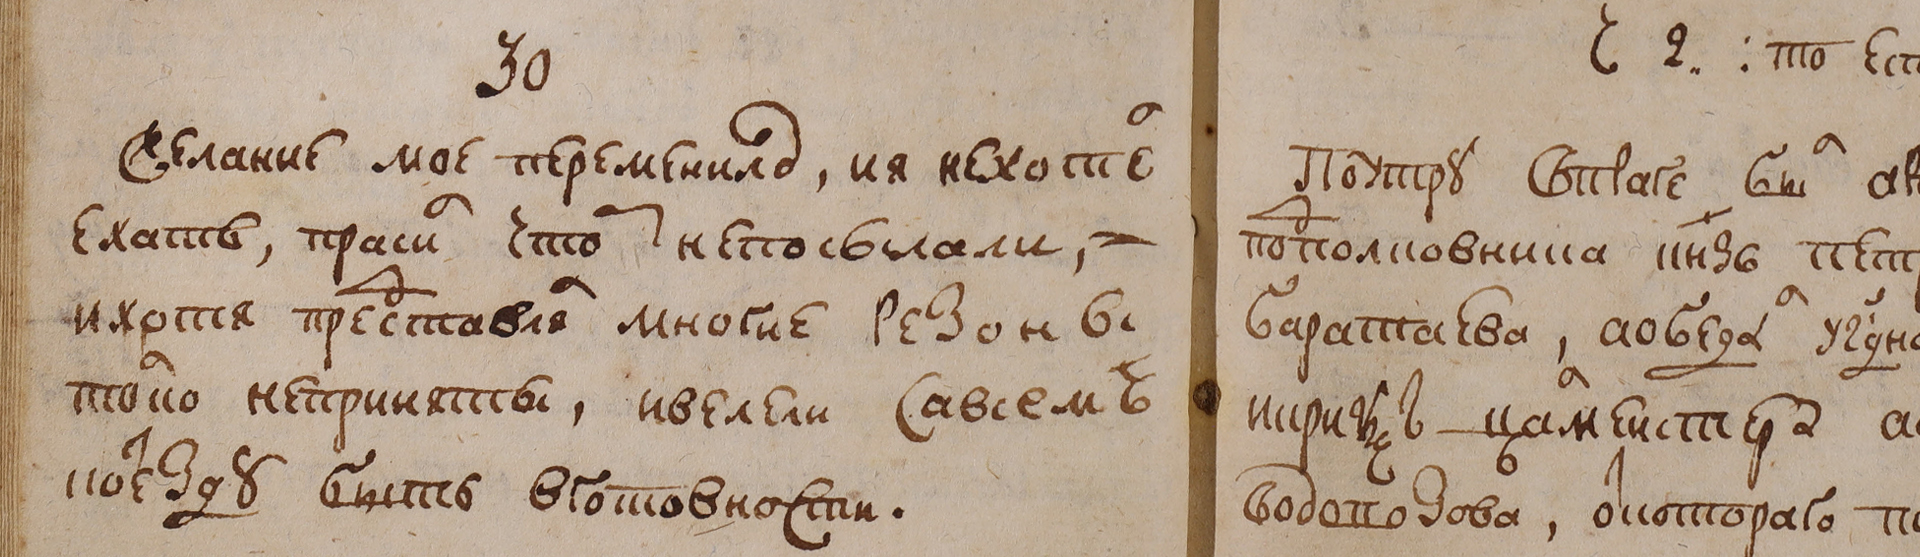 30
Желание мое переменилос, ия нехоте
ехать, прасил чтоб непосылали,
ихотя представлял многие резоны
толко неприняты, ивелели савсем к
поезду быть вготовности.
2.: то ест
Поутру былъ
потполковника кнзь пет
баратаева, аобедал
кирих цалмейстера
водопозова, окотораго по